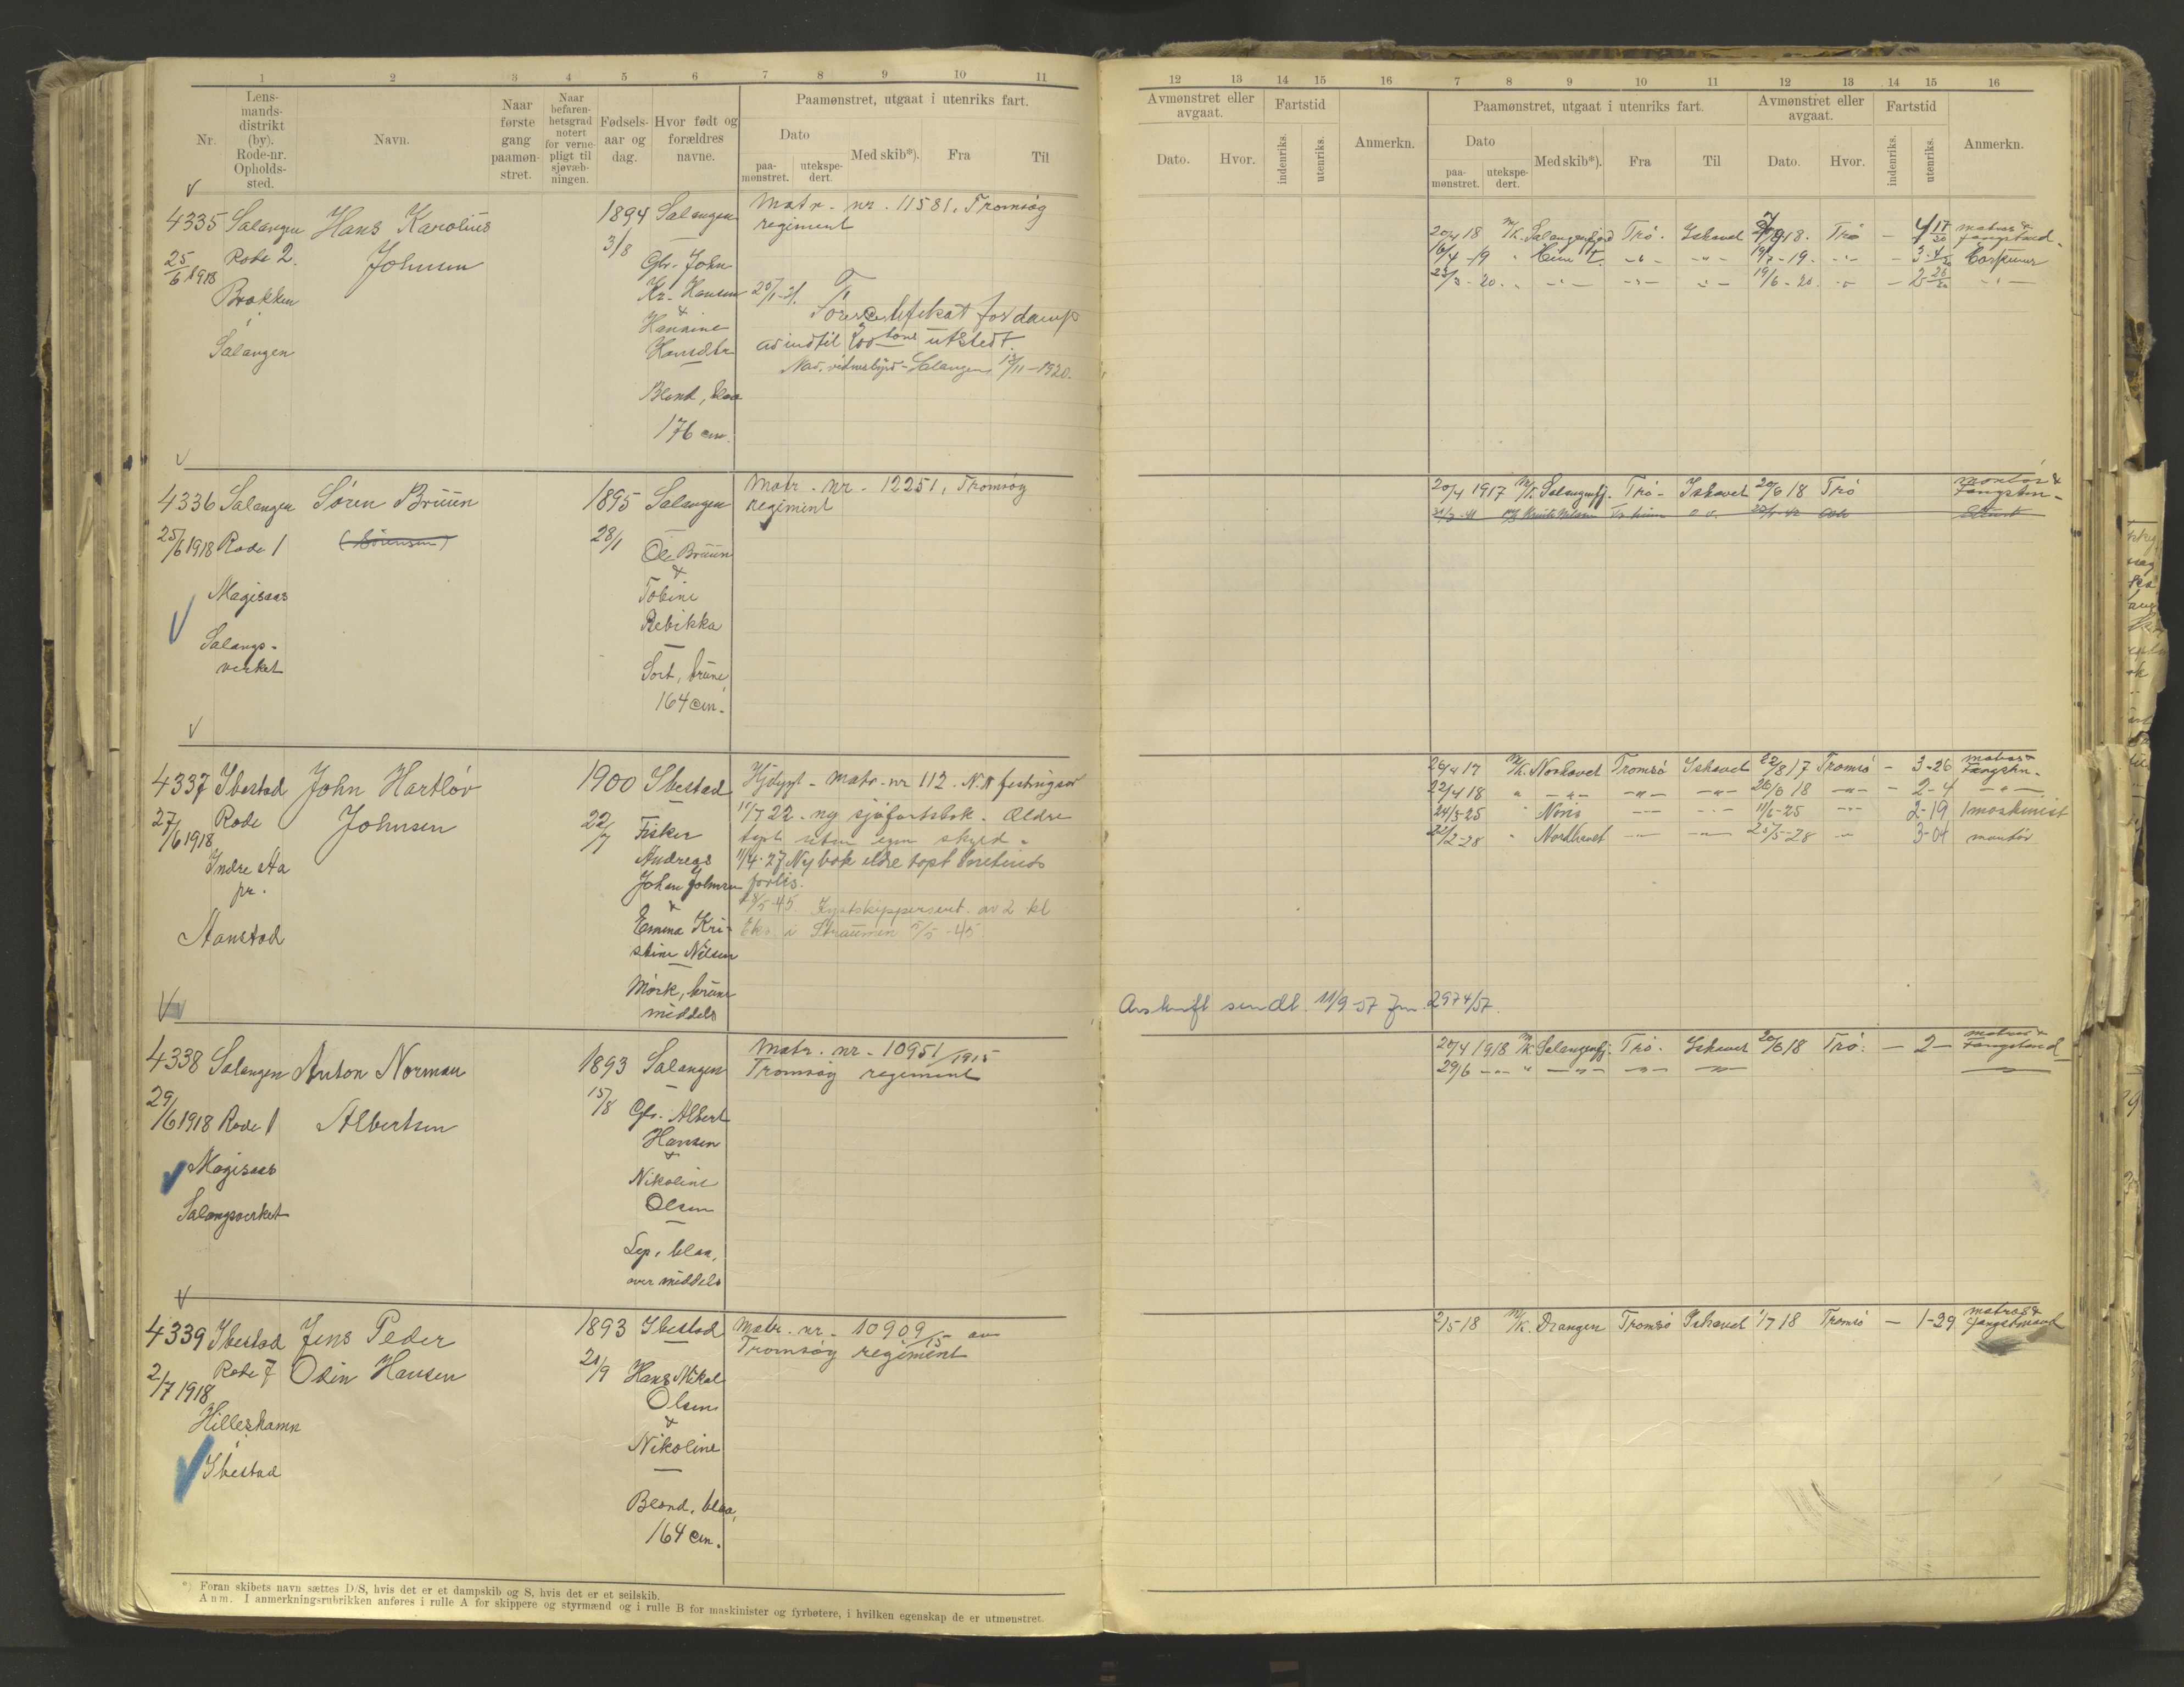 1 2 3 4 5 6 7 8 9 10 11
Nr.
Lens-
mands-
distrikt
(by).
Rode-nr.
Opholds-
sted.
Navn.
Naar
første
gang
paamøn-
stret.
Naar
befaren-
hetsgrad
notert
for verne-
pligt til
sjøvæb-
ningen.
Fødsels-
aar og
dag.
Hvor født og
forældres
navne.
Paamønstret, utgaat i utenriks fart.
Dato
paa-
mønstret.
utekspe-
dert.
Med skib*).
Fra
Til
4335 Salangen Hans Karolius 1894 Salangen
25/6 1918 Rode 2. Johnsen 3/8 Gbr. John
Brokken Kr. Hansen
&
Salangen Hansine
Hansdtr
Blond, blaa
176 cm.
Matr. nr. 11581, Tromsøg
regiment
for damp
av indtil utstedt.
Nav. vidnesbyrd - Salangen 12/11-1920.
4336 Salangen Søren Brüün 1895 Salangen
25/6 1918 Rode 1 (Sørensen) 28/1 Ole Brüün
&
Magisaas Tobine
Rebikka
Salangs-
verket Sort, brune,
164 cm.
Matr. nr. 12251, Tromsøg
regiment
4337 Ibestad John Hartløv 1900 Ibestad
27/6 1918 Rode Johnsen 22/7 Fisker
Indre Aa Andreas
pr. Johan Johnsen
&
Aanstad Emma Kri-
stine Nilsen
Mørk, brune
middels
Matr. nr 112
11/7 22. ny sjøfartsbok. Ældre
tapt uten egen skyld.
11/4-27 Ny bok eldre tapt
forlis.
Kystskippersert. av 2 kl
Eks. i Straumen 5/5-45
4338 Salangen Anton Norman 1893 Salangen
29/6 1918 Rode 1 Albertsen 15/8 Gbr. Albert
Hansen
&
Magisaas Nikoline
Olsen
Salangsverket
Lys, blaa,
over middels
Matr. nr. 10951/1915
Tromsøg regiment
4339 Ibestad Jens Peder 1893 Ibestad
2/7 1918 Rode 7 Odin Hansen 21/9 Hans Mikal
Olsen
&
Hilleshamn Nikoline
Ibestad
Blond, blaa,
164 cm.
Matr. nr. 10909/15 av
Tromsøg regiment
*) Foran skibets navn sættes D/S, hvis det er et dampskib og S. hvis det er et seilskib.
Anm. I anmerkningsrubrikken anføres i rulle A for skippere og styrmænd og i rulle B for maskinister og fyrbøtere, i hvilken egenskap de er utmønstret.
12 13 14 15 16 7 8 9 10 11 12 13 14 15 16
Avmønstret eller
avgaat.
Dato.
Hvor.
Fartstid
indenriks.
utenriks.
Anmerkn.
Paamønstret, utgaat i utenriks fart.
Dato
paa-
mønstret.
utekspe-
dert.
Med skib*).
Fra
Til
Avmønstret eller
avgaat.
Dato.
Hvor.
Fartstid
indenriks.
utenriks.
Anmerkn.
20/4 18 M/K. Salangsfjord Trø. Ishavet Trø - matros &
fangstmd.
16/4-19 " Heim I. -"- -"- 19/7-19. -"-
23/3-20. " -"- -"- -"- 19/6-20. -"-
20/4 1917 M/K. Salangsfj. Trø. Ishavet 20/6 18 Trø
Fangstm.
26/4 17 M/K. Nordhavet Tromsø Ishavet 22/8 17 Tromsø - 3-26 matros
Fangstm.
22/4 18 " -"- -"- -"- 26/6 18 -"- - 2-4 -"-
24/3-25 " Noris -"- -"- 11/6-25 -"- 2-19 1 maskinist
22/2-28 " Nordhavet -"- -"- 25/5-28 -"- 3-04 montør
Avskrift sendt. 11/9-57 Jnr. 2974/57.
20/4 1918 M/K. Salangsfj. Trø. Ishavet 20/6 18 Trø. - 2- matros &
Fangstmd
29/6 -"- " -"- -"- -"-
2/5-18 M/K. Drangen Tromsø Ishavet 1/7 18 Tromsø - 1-29 matros &
fangstmand